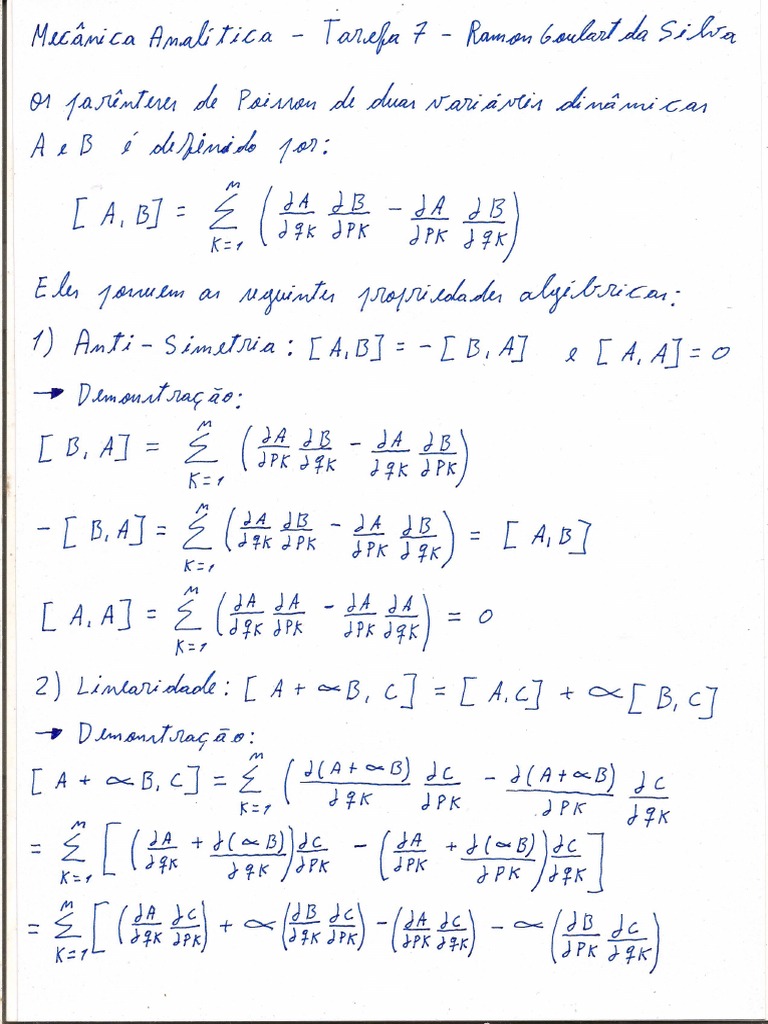 Mecânica Analítica - Tarefa 7 - Ramon Goulart da Silva
Os parênteses de Poisson de duas variáveis dinâmicas
A e B é definido por:
[A, B] = ∑_{K=1}^{n} (∂A/∂qK ∂B/∂PK - ∂A/∂PK ∂B/∂qK)
Eles possuem as seguintes propriedades algébricas:
1) Anti-Simetria: [A, B] = -[B, A] e [A, A] = 0
→ Demonstração:
[B, A] = ∑_{K=1}^{n} (∂A/∂PK ∂B/∂qK - ∂A/∂qK ∂B/∂PK)
-[B, A] = ∑_{K=1}^{n} (∂A/∂qK ∂B/∂PK - ∂A/∂PK ∂B/∂qK) = [A, B]
[A, A] = ∑_{K=1}^{n} (∂A/∂qK ∂A/∂PK - ∂A/∂PK ∂A/∂qK) = 0
2) Linearidade: [A + αB, C] = [A, C] + α[B, C]
→ Demonstração:
[A + αB, C] = ∑_{K=1}^{n} (∂(A+αB)/∂qK ∂C/∂PK - ∂(A+αB)/∂PK ∂C/∂qK
= ∑_{K=1}^{n} [(∂A/∂qK + ∂(αB)/∂qK) ∂C/∂PK - (∂A/∂PK + ∂(αB)/∂PK) ∂C/∂qK]
= ∑_{K=1}^{n} [(∂A/∂qK ∂C/∂PK) + α(∂B/∂qK ∂C/∂PK) - (∂A/∂PK ∂C/∂qK) - α(∂B/∂PK ∂C/∂qK)